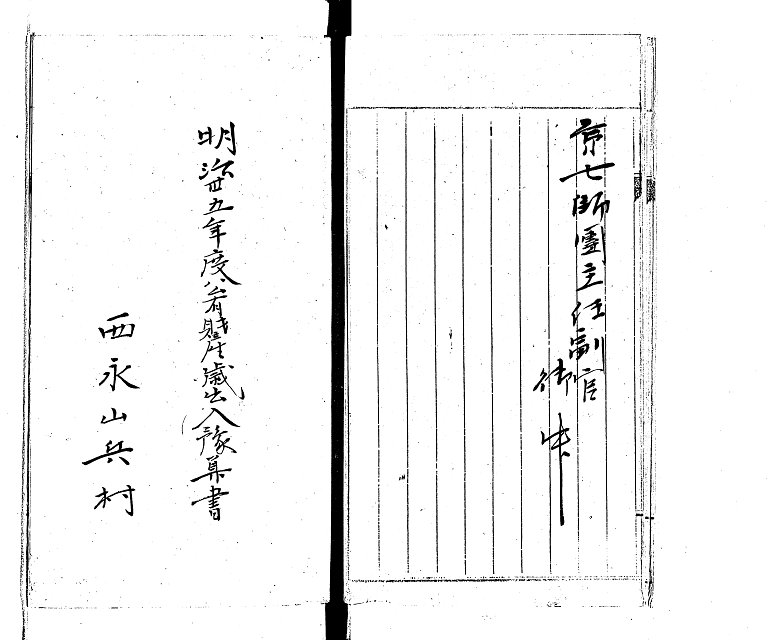 第七師團主任副官
御中
明治卅五年度公有財産歳出入豫算書
西永山兵村